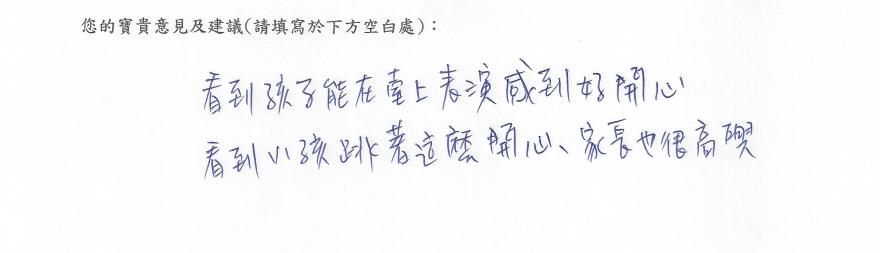 您的寶貴意見及建議(請填寫於下方空白處)：
看到孩子能在臺上表演感到好開心
看到小孩跳著這麼開心、家長也很高興